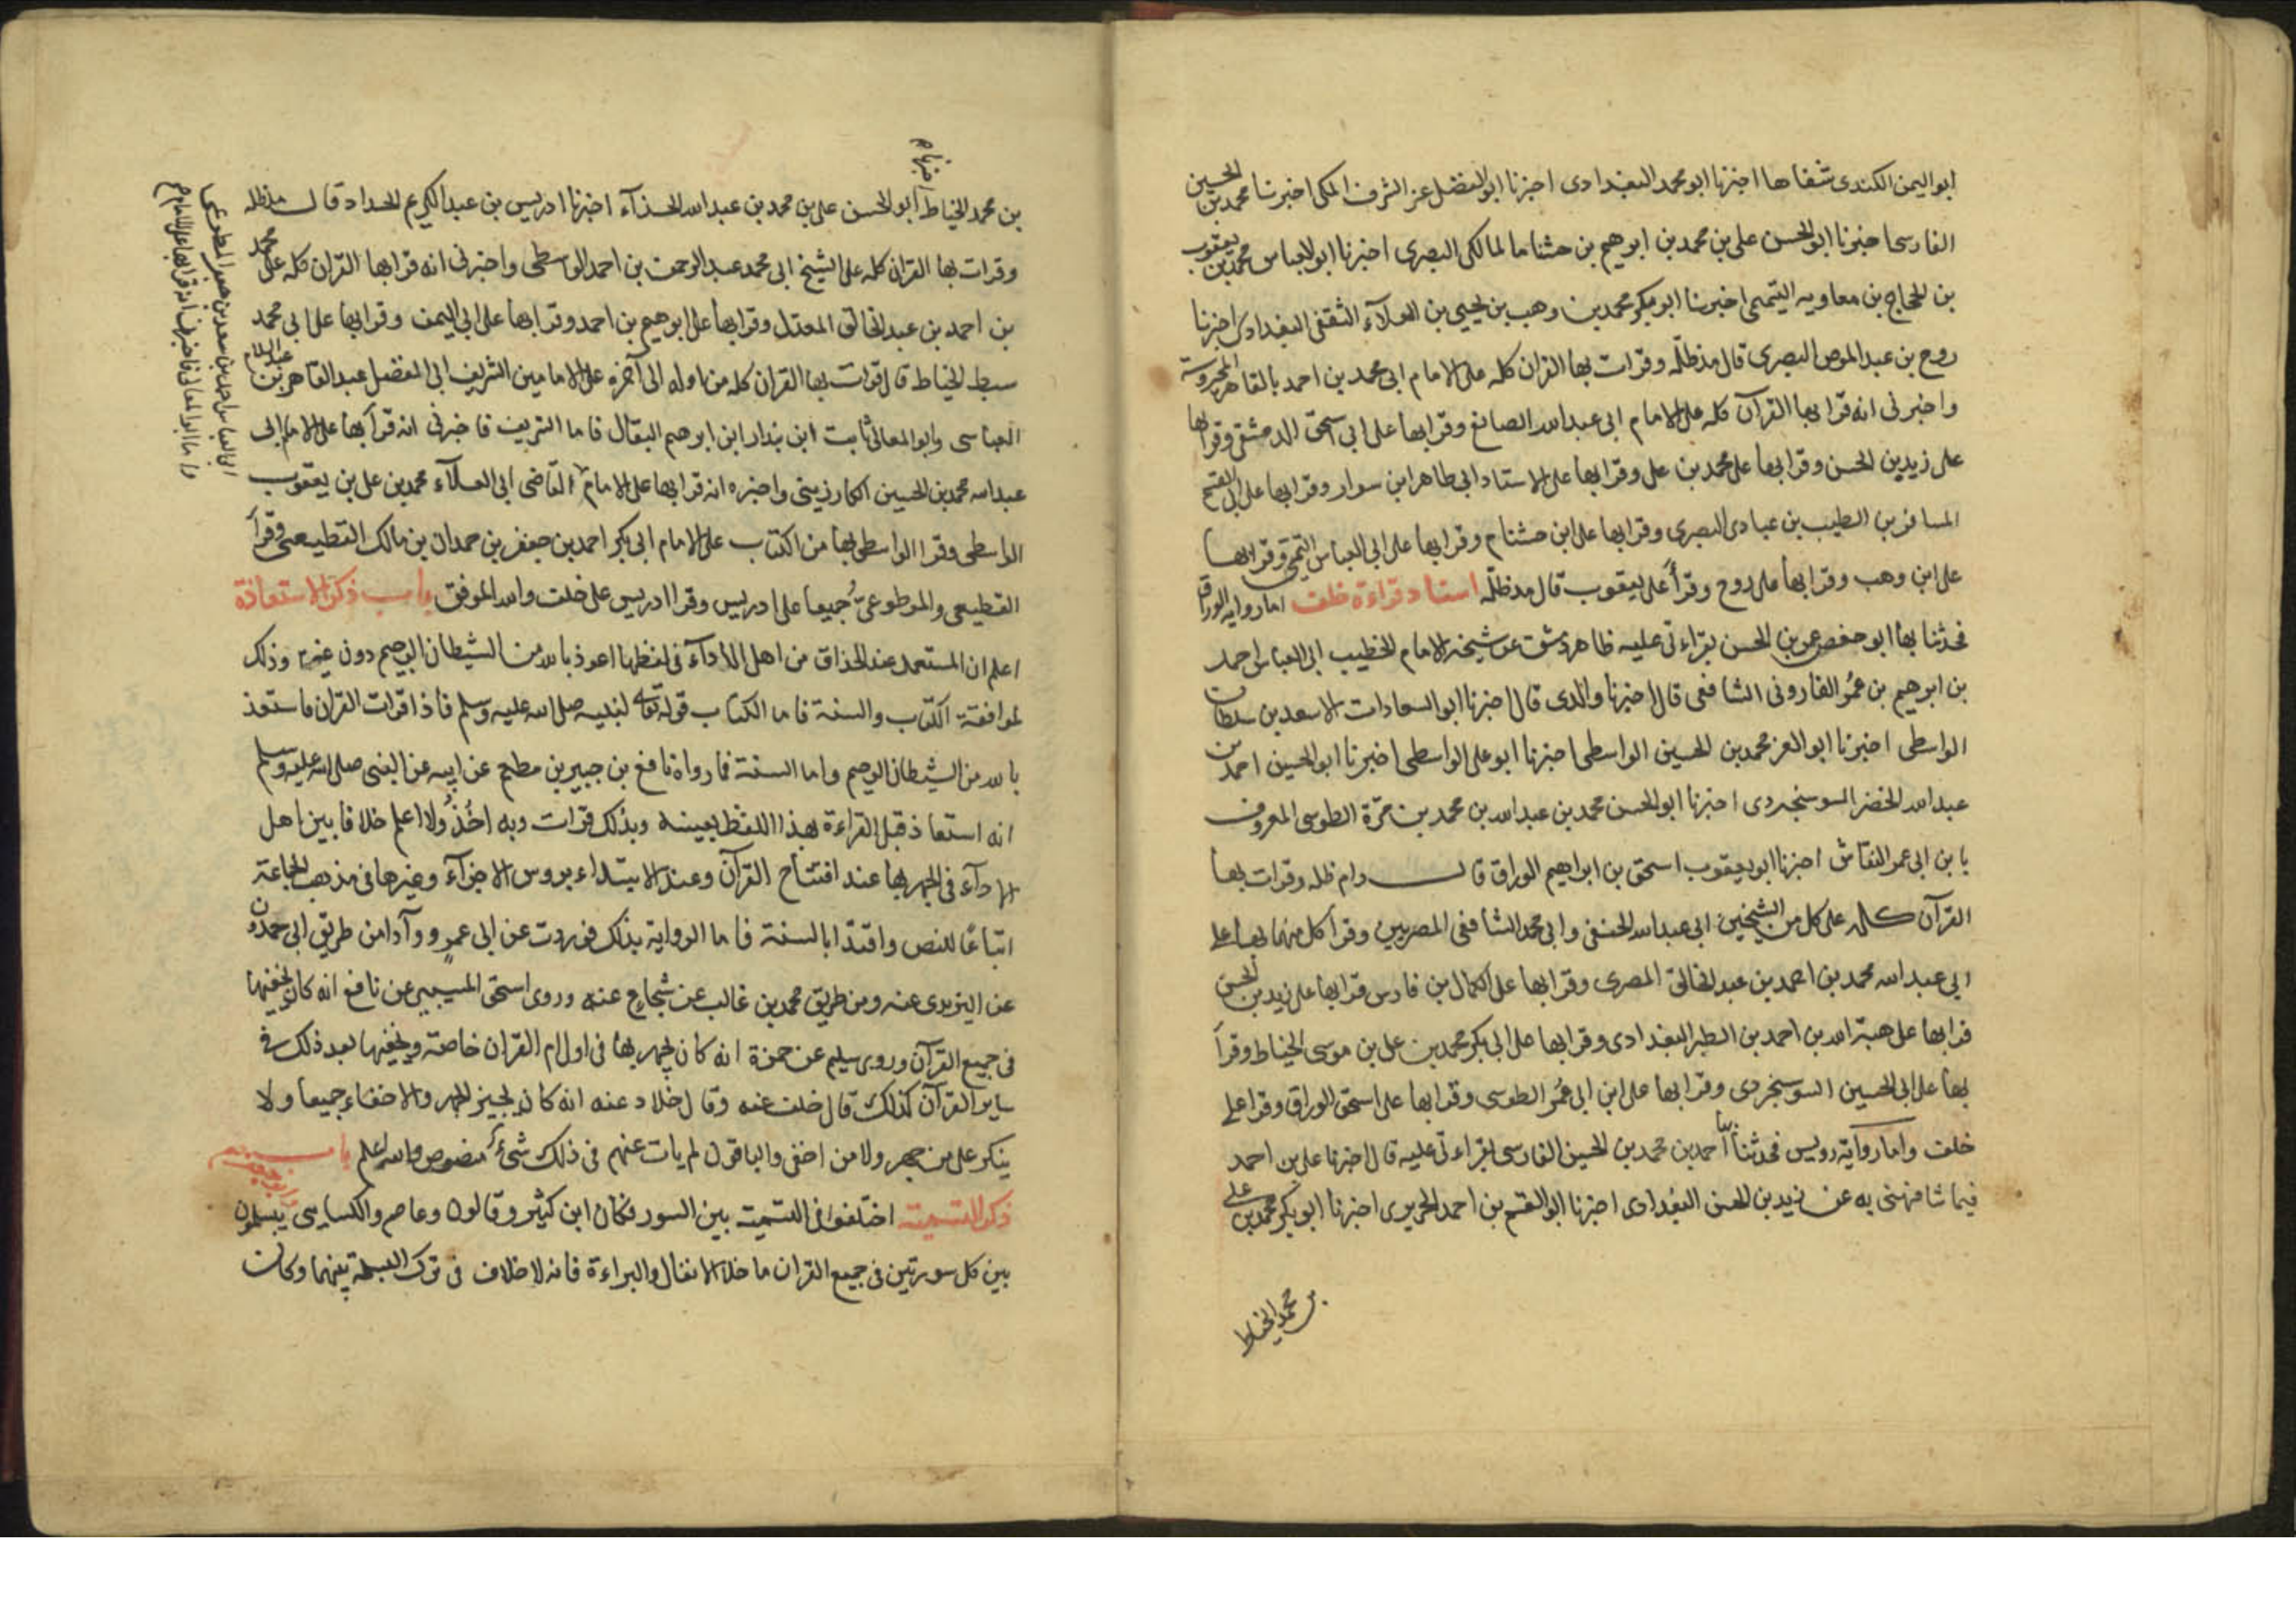 ابو اليمن الكندى شفاها اخبرنا ابو محمد البغدادى اخبرنا ابو الفضل عز الشرف المكى اخبرنا محمد بن الحسين
الفارسى اخبرنا ابو الحسن على بن محمد بن ابرهيم بن خشنام المالكى البصرى اخبرنا ابو العباس محمد بن يعقوب
بن الحجاج بن معاويه التيمى اخبرنا ابو بكر محمد بن وهب بن يحيى بن العلآء الثقفى البغدادى اخبرنا
روح بن عبد المومن البصرى قال مد ظله وقرات بها القران كله على الامام ابى محمد بن احمد بالقاهرة المحروسة
واخبرنى انه قرا بها القرآن كله على الامام ابى عبد الله الصائغ وقرا بها على ابى اسحق الدمشقى وقرا بها
على زيد بن الحسن وقرا بها على محمد بن على وقرا بها على الاستاد ابى طاهر ابن سوار وقرا بها على ابى الفتح
المسافر بن الطيب بن عبادى البصرى وقرا بها على ابن خشنام وقرا بها على ابى العباس التيمى وقرا بها
على ابن وهب وقرا بها على روح وقرأ على يعقوب قال مد ظله اسناد قراءة خلف اما رواية الوراق
فحدثنا بها ابو حفص عمر بن الحسن بقراءتى عليه ظاهر دمشق عن شيخه الامام الخطيب ابى العباس احمد
بن ابرهيم بن عمر الفاروثى الشافعى قال اخبرنا والدى قال اخبرنا ابو السعادات الاسعد بن سلطان
الواسطى اخبرنا ابو العز محمد بن الحسين الواسطى اخبرنا ابو على الواسطى اخبرنا ابو الحسين احمد بن
عبد الله الخضر السوسنجردى اخبرنا ابو الحسن محمد بن عبد الله بن محمد بن مرّة الطوسى المعروف
بابن ابى عمر النقاش اخبرنا ابو يعقوب اسحق بن ابراهيم الوراق قال دام ظله وقرات بها
القرآن كله على كل من الشيخين ابى عبد الله الحنفى وابى محمد الشافعى المصريين وقرأ كل منهما بها على
ابى عبد الله محمد بن احمد بن عبد الخالق المصرى وقرا بها على الكمال بن فارس قرا بها على زيد بن الحسن
قرا بها على هبة الله بن احمد بن الطبر البغدادى وقرا بها على ابى بكر محمد بن على بن موسى الخياط وقرأ
بها على ابى الحسين السوسنجردى وقرا بها على ابن ابى عمر الطوسى وقرا بها على اسحق الوراق وقرا على
خلف واما رواية دريس فحدثنا احمد بن محمد بن الحسين الفارسى بقراءتى عليه قال اخبرنا على بن احمد
فيما شافهنى به عن زيد بن الحسن البغدادى اخبرنا ابو القسم بن احمد الحريرى اخبرنا ابو بكر محمد بن على
بن محمد الخياط
اخبرنا م
بن محمد الخياط ابو الحسن على بن محمد بن عبد الله الحذآء اخبرنا ادريس بن عبد الكريم الحداد قال مد ظله
وقرات بها القران كله على الشيخ ابى محمد عبد الرحمن بن احمد الواسطى واخبرنى انه قرا بها القران كله على محمد
بن احمد بن عبد الخالق المعدل وقرا بها على ابرهيم بن احمد وقرا بها على ابى اليمن وقرا بها على ابى محمد
سبط الخياط قال قرات بها القران كله من اوله الى آخره على الامامين الشريف ابى الفضل عبد القاهر بن عبد السلام
العباسى وابو المعالى ثابت ابن بندار ابن ابرهيم البقال فاما الشريف فاخبرنى انه قرأ بها على الامام ابى
عبد الله محمد بن الحسين الكارزينى واخبره انه قرا بها على الامام القاضى ابى العلآء محمد بن على بن يعقوب
الواسطى وقرا الواسطى بها من الكتاب على الامام ابى بكر احمد بن جعفر بن حمدان بن مالك القطيعى وقرأ
القطيعى والموطوعى جميعا على ادريس وقرا ادريس على خلف والله الموفق باب ذكر الاستعاذة
اعلم ان المستعمل عند الحذاق من اهل الأدآء فى لفظها اعوذ بالله من الشيطان الرجيم دون غيره وذلك
لموافقة الكتاب والسنة فاما الكتاب قوله تعالى لنبيه صلى الله عليه وسلم فاذا قرات القران فاستعذ
بالله من الشيطان الرجيم واما السنة فما رواه نافع بن جبير بن مطعم عن ابيه عن النبى صلى الله عليه وسلم
انه استعاذ قبل القراءة بهذا اللفظ بعينه وبذلك قرات وبه اخذ ولا اعلم خلافا بين اهل
الادآء فى الجهر بها عند افتتاح القرآن وعند الابتداء بروس الاجزآء وغيرها فى مذهب الجماعة
اتباعًا للنص واقتدآ بالسنة فاما الرواية بذلك فوردت عن ابى عمرو ادآ من طريق ابى حمدون
عن اليزيدى عنه ومن طريق محمد بن غالب عن شجاع عنه وروى اسحق المسيبى عن نافع انه كان يخفيها
فى جميع القرآن وروى سليم عن حمزة انه كان يجهر بها فى اول ام القران خاصة ويخفيها بعد ذلك فى
ساير القرآن كذلك قال خلف عنه وقال خلاد عنه انه كان يجيز الجهر والاخفاء جميعا ولا
ينكر على من جهر ولا من اخفى والباقون لم يات عنهم فى ذلك شئ منصوص والله اعلم باب
ذكر التسمية اختلفوا فى التسمية بين السور فكان ابن كثير وقالون وعاصم والكسايى يبسملون
بين كل سورتين فى جميع القران ما خلا الانفال والبراءة فانه لا خلاف فى ترك البسملة بينهما وكان